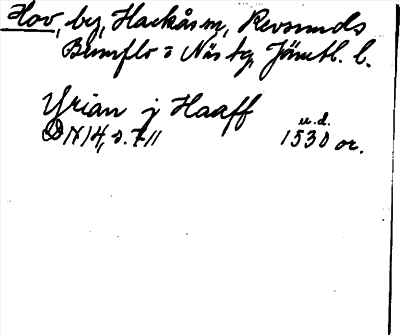 Hov, by, Hackås sn, Revsunds
Brunflo o Näs tg, Jämtl. l.
Yrian j Haaff
DN 14, s. 711 u.d. 1530 or.